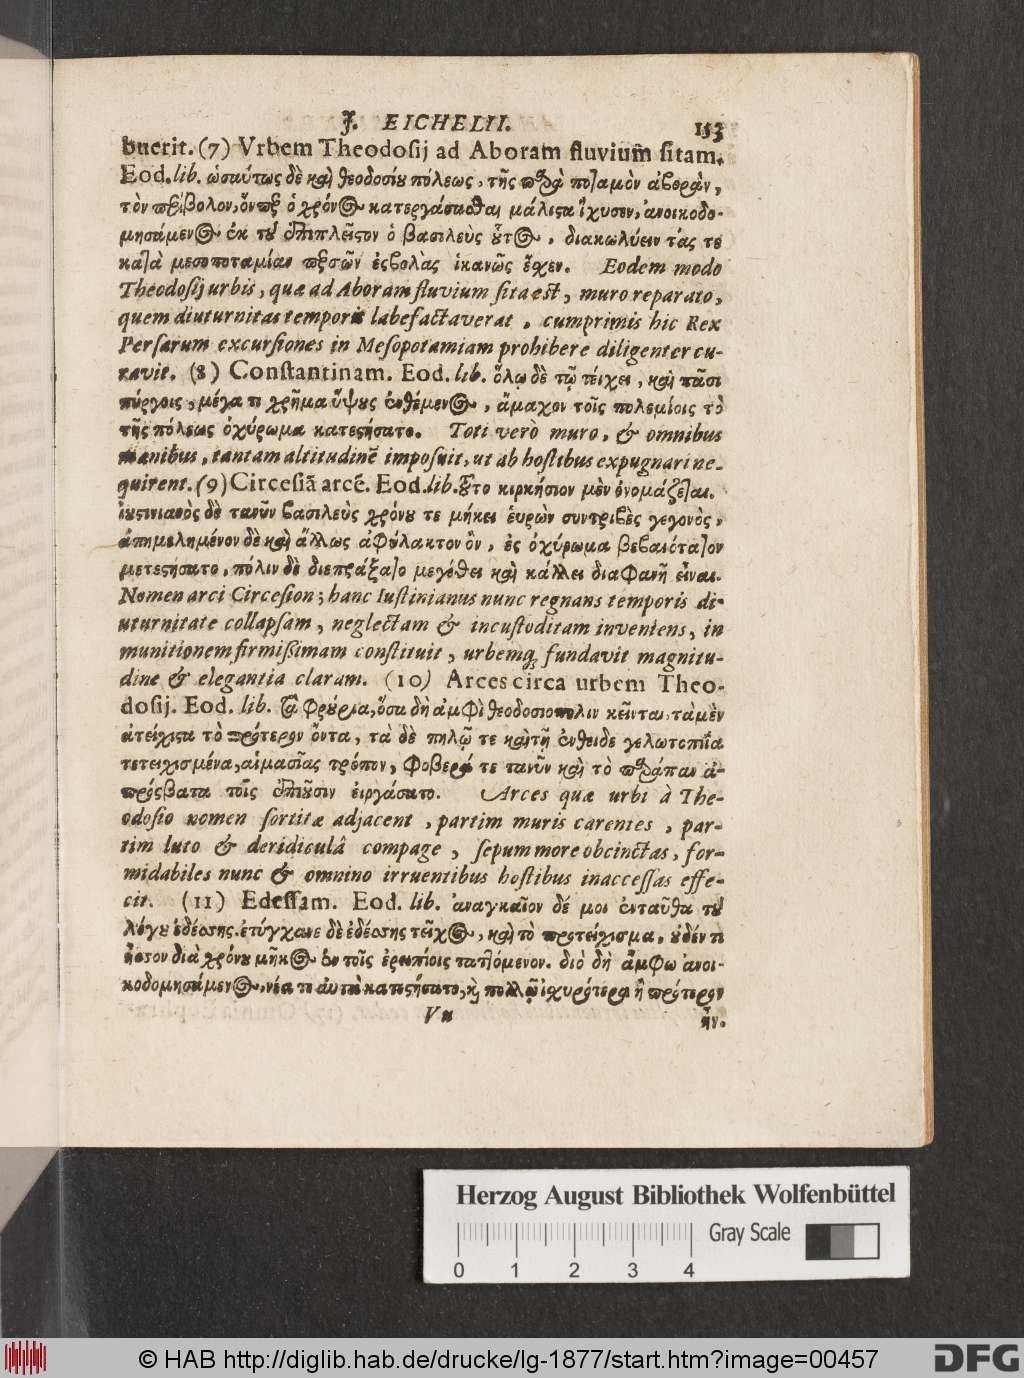 J. EICHELII. 153
buerit. (7) Vrbem Theodosij ad Aboram fluvium sitam.
Eod. lib. ὡσαύτως δὲ καὶ θεοδοσίου πόλεως, τῆς παρὰ ποταμὸν ἀβορὰν,
τὸν περίβολον, ὅνπερ ὁ χρόνος κατεργάσασθαι μάλιστα ἴχυσεν, ἀνοικοδο-
μησάμενος ἐκ τοῦ ἐπιπλεῖστον ὁ βασιλεὺς οὗτος, διακωλύειν τάς τε
κατὰ μεσοποταμίαν περσῶν ἐσβολὰς ἱκανῶς ἔχεν. Eodem modo
Theodosij urbis, quæ ad Aboram fluvium sita est, muro reparato,
quem diuturnitas temporis labefactaverat, cumprimis hic Rex
Persarum excursiones in Mesopotamiam prohibere diligenter cu-
ravit. (8) Constantinam. Eod. lib. ὅλῳ δὲ τῷ τείχει, καὶ πᾶσι
πύργοις, μέγα τι χρῆμα ὕψους ἐνθέμενος, ἄμαχον τοῖς πολεμίοις τὸ
τῆς πόλεως ὀχύρωμα κατεστήσατο. Toti verò muro, & omnibus
manibus, tantam altitudinē imposuit, ut ab hostibus expugnari ne-
quirent. (9) Circesiā arcē. Eod. lib. οὗτο κιρκήσιον μὲν ὀνομάζεται.
ἰουστινιανὸς δὲ τανῦν βασιλεὺς χρόνου τε μήκει ἑυρὼν συντριβὲς γεγονὸς,
ἀπημελημένον δὲ καὶ ἄλλως ἀφύλακτον ὂν, ἐς ὀχύρωμα βεβαιότατον
μετεστήσατο, πόλιν δὲ διεπράξατο μεγέθει καὶ κάλλει διαφανῆ εἶναι.
Nomen arci Circesion; hanc Iustinianus nunc regnans temporis di-
uturnitate collapsam, neglectam & incustoditam inveniens, in
munitionem firmissimam constituit, urbemq; fundavit magnitu-
dine & elegantia claram. (10) Arces circa urbem Theo-
dosij. Eod. lib. τὰ φρούρια, ὅσα δὴ ἀμφὶ θεοδοσιοπολιν κεῖνται, τὰ μὲν
ἀτείχιστα τὸ πρότερον ὄντα, τὰ δὲ πηλῷ τε καὶ τῇ ἐνθειδε γελωτοποιΐα
τετειχισμένα, αἱμασίας τρόπον, φοβερά τε τανῦν καὶ τὸ παράπαν ἀ-
πρόσβατα τοῖς ἐπιοῦσιν εἰργάσατο. Arces quæ urbi à The-
odosio nomen sortitæ adjacent, partim muris carentes, par-
tim luto & deridiculâ compage, sepum more obcinctas, for-
midabiles nunc & omnino irruentibus hostibus inaccessas effe-
cit. (11) Edessam. Eod. lib. ἀναγκαῖον δέ μοι ἐνταῦθα τοῦ
λόγου ἐδέσσης. ἐτύγχανε δὲ ἐδέσσης τεῖχος, καὶ τὸ προτείχισμα, οὐδέν τι
ἧσσον διὰ χρόνου μῆκος ἐν τοῖς ἐρειπίοις ταττόμενον. διὸ δὴ ἄμφω ἀνοι-
κοδομησάμενος, νέα τε ἀυτὰ κατεστήσατο, καὶ πολλῷ ἰχυρότερα ἢ πρότερον
Vu ἦν.
Herzog August Bibliothek Wolfenbüttel
Gray Scale
0 1 2 3 4
© HAB http://diglib.hab.de/drucke/lg-1877/start.htm?image=00457
DFG